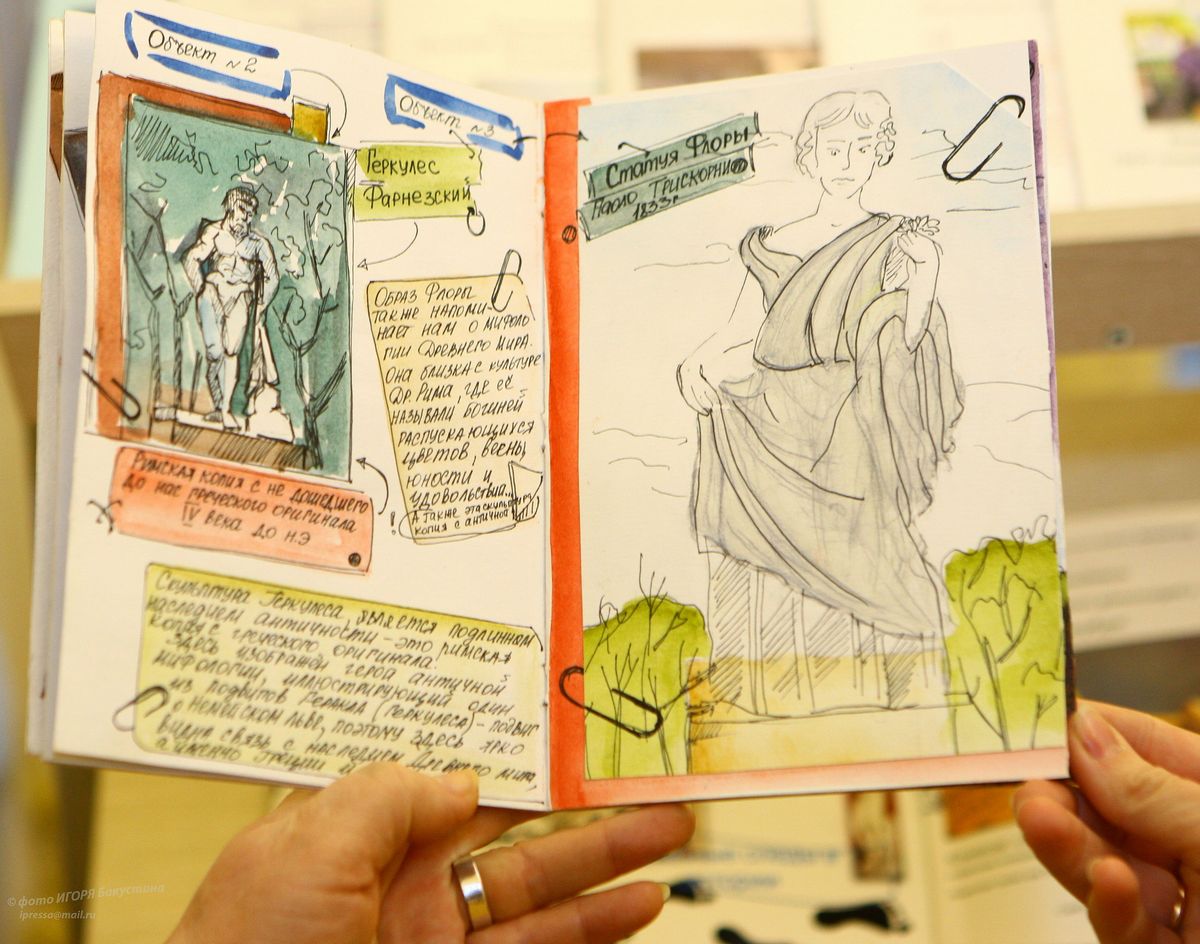 Объект №2
Объект №3
Геркулес
Фарнезский
Образ Флоры
также напоми-
нает нам о мифоло
гии Древнего мира.
Она близка с культуре
Др. Рима, где её
называли богиней
распускающихся
цветов, весны,
юности и
удовольствий...
А также эта скульптура
копия с античной
!
Римская копия с не дошедшего
до нас греческого оригинала
IV века до н.э
Скульптура Геркулеса, является подлинным
наследием античности - это римская
копия с греческого оригинала!
Здесь изображён герой античной
мифологии, иллюстрирующий один
из подвигов Геракла (Геркулеса) - подвиг
о Немейском льве, поэтому здесь ярко
видна связь с наследием Древнего мира,
а именно Греции и
Статуя Флоры
Паоло Трискорни
1833г
© фото ИГОРЯ Бакустина
ipressa@mail.ru